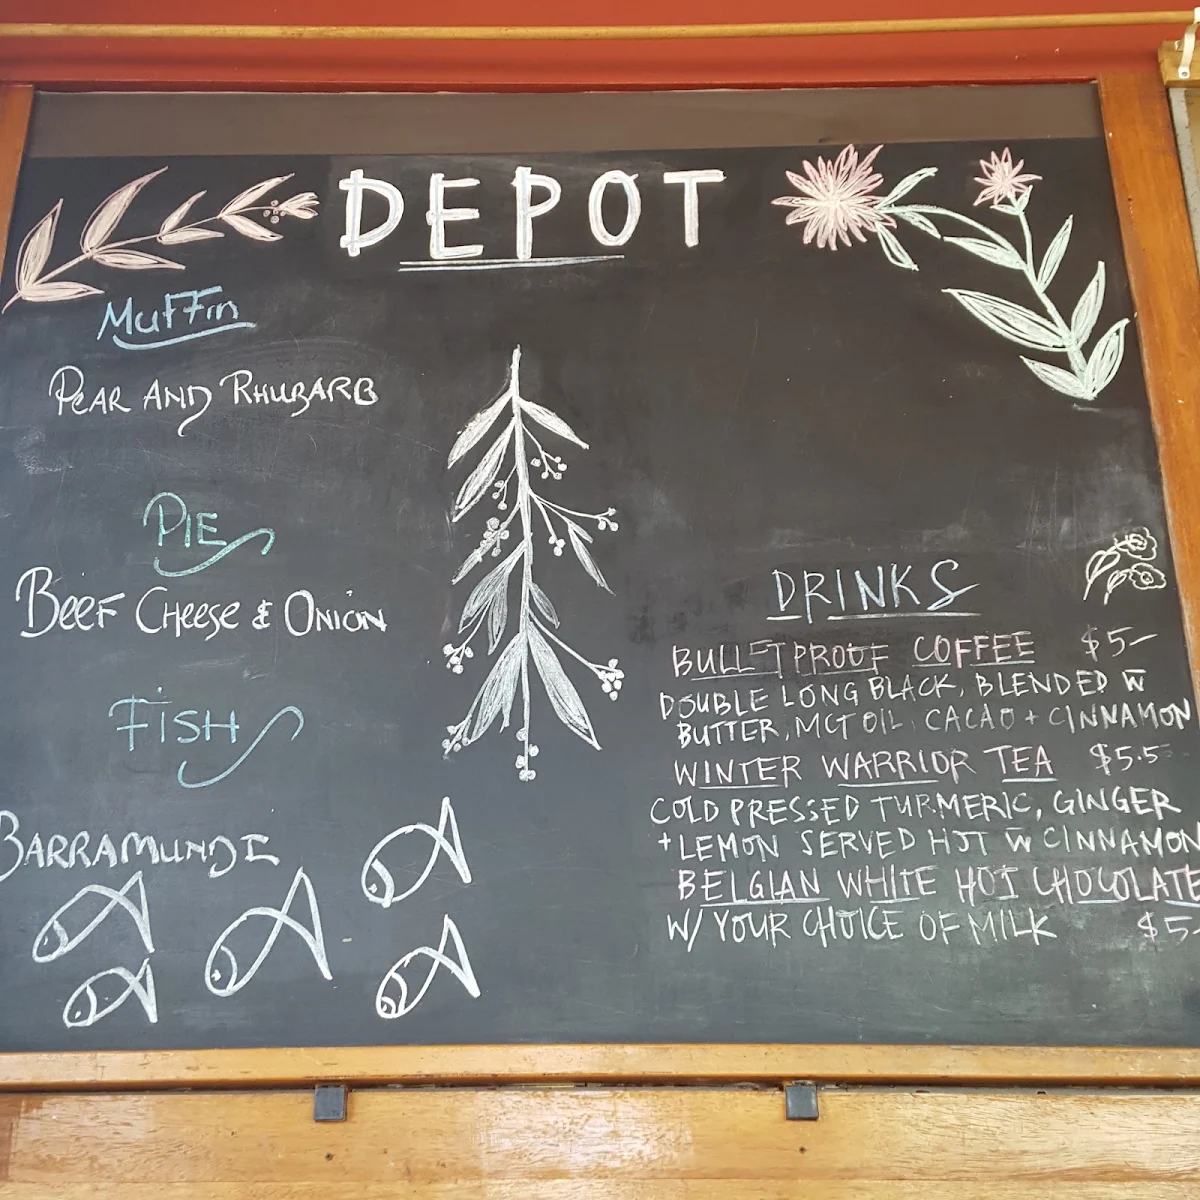 DEPOT
Muffin
Pear and Rhubarb
Pie
Beef Cheese & Onion
Fish
Barramundi
DRINKS
BULLETPROOF COFFEE $5-
DOUBLE LONG BLACK, BLENDED w̅
BUTTER, MCT OIL, CACAO + CINNAMON
WINTER WARRIOR TEA $5.5
COLD PRESSED TURMERIC, GINGER
+ LEMON SERVED HOT w̅ CINNAMON
BELGIAN WHITE HOT CHOCOLATE
W/ YOUR CHOICE OF MILK $5-